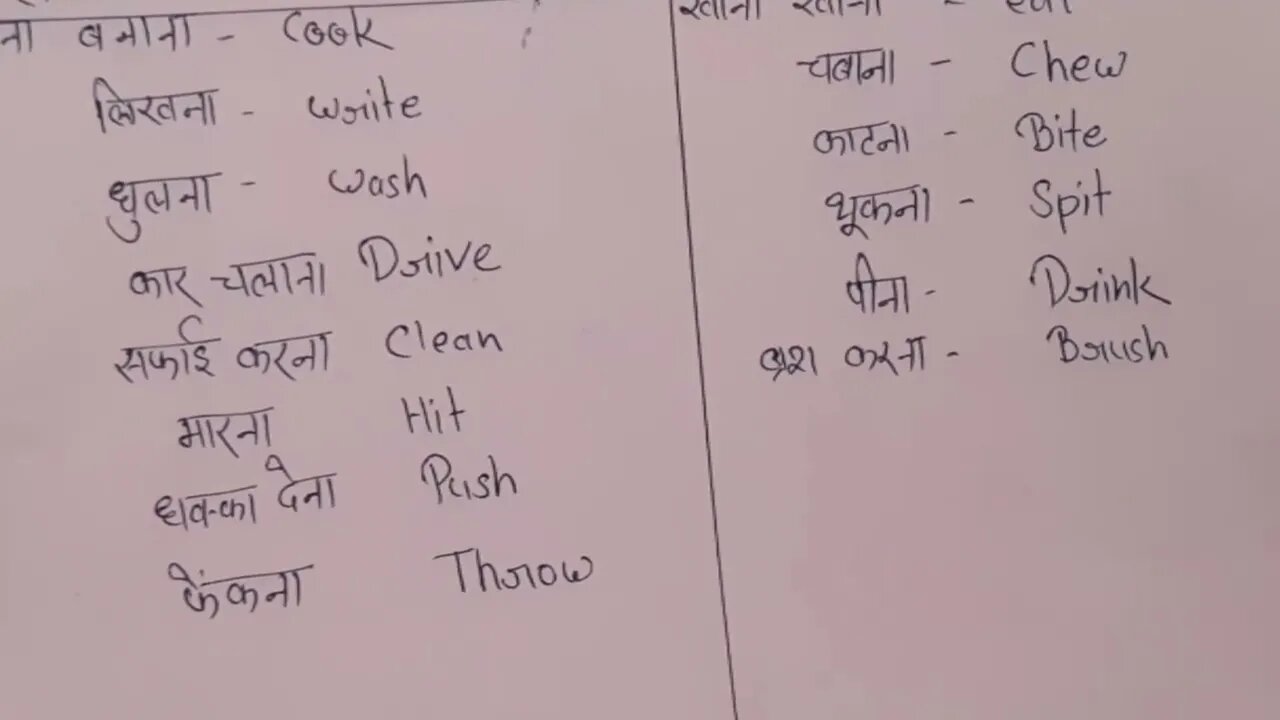 बनाना - Cook
लिखना - Write
धुलना - Wash
कार चलाना Drive
सफाई करना Clean
मारना Hit
धक्का देना Push
फेंकना Throw
खाना खाना - Eat
चबाना - Chew
काटना - Bite
थूकना - Spit
पीना - Drink
ब्रश करना - Brush